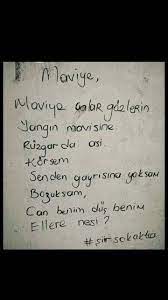 Maviye,
Maviye çalar gözlerin
Yangın mavisine
Rüzgarda asi
Körsem
Senden gayrısına yoksam
Bozuksam,
Can benim düş benim
Ellere nesi?
#siirsokakta